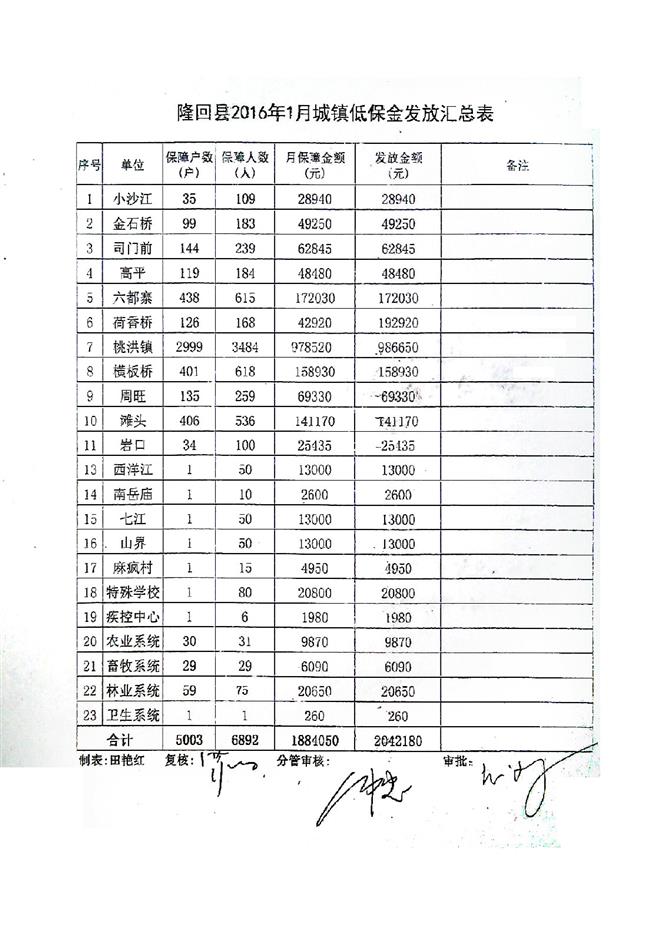 隆回县2016年1月城镇低保金发放汇总表
序号 单位 保障户数(户) 保障人数(人) 月保障金额(元) 发放金额(元) 备注
1 小沙江 35 109 28940 28940
2 金石桥 99 183 49250 49250
3 司门前 144 239 62845 62845
4 高平 119 184 48480 48480
5 六都寨 438 615 172030 172030
6 荷香桥 126 168 42920 192920
7 桃洪镇 2999 3484 978520 986650
8 横板桥 401 618 158930 158930
9 周旺 135 259 69330 69330
10 滩头 406 536 141170 141170
11 岩口 34 100 25435 25435
13 西洋江 1 50 13000 13000
14 南岳庙 1 10 2600 2600
15 七江 1 50 13000 13000
16 山界 1 50 13000 13000
17 麻疯村 1 15 4950 4950
18 特殊学校 1 80 20800 20800
19 疾控中心 1 6 1980 1980
20 农业系统 30 31 9870 9870
21 畜牧系统 29 29 6090 6090
22 林业系统 59 75 20650 20650
23 卫生系统 1 1 260 260
合计 5003 6892 1884050 2042180
制表:田艳红 复核: 分管审核: 审批: